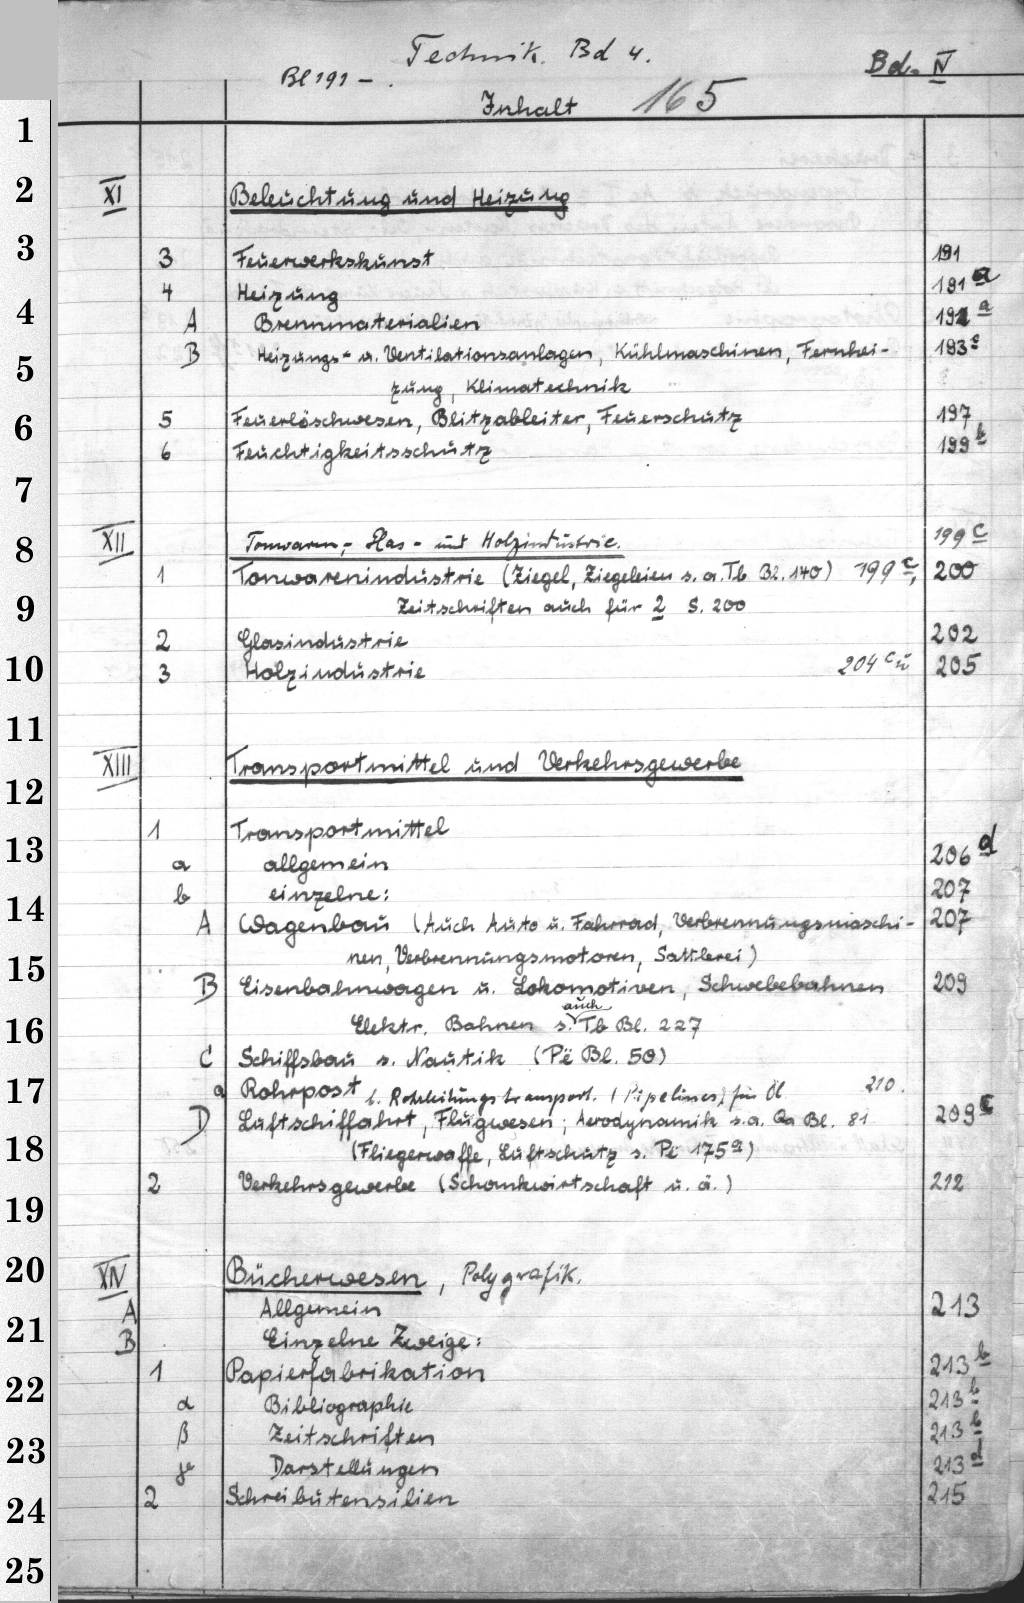 Technik. Bd 4.
Bd. IV
Bl 191 - .
Inhalt 165
XI Beleuchtung und Heizung
3 Feuerwerkskunst 191
4 Heizung 191 a
A Brennmaterialien 192 a
B Heizungs- u. Ventilationsanlagen, Kühlmaschinen, Fernhei- 193 c
zung, Klimatechnik
5 Feuerlöschwesen, Blitzableiter, Feuerschutz 197
6 Feuchtigkeitsschutz 199 b
XII Tonwaren-, Glas- und Holzindustrie. 199 c
1 Tonwarenindustrie (Ziegel, Ziegeleien s. a. Tb Bl. 140) 199 c, 200
Zeitschriften auch für 2 S. 200
2 Glasindustrie 202
3 Holzindustrie 204 c u 205
XIII Transportmittel und Verkehrsgewerbe
1 Transportmittel
a allgemein 206 d
b einzelne: 207
A Wagenbau (Auch Auto u. Fahrrad, Verbrennungsmaschi- 207
nen, Verbrennungsmotoren, Sattlerei)
B Eisenbahnwagen u. Lokomotiven, Schwebebahnen 209
Elektr. Bahnen s. auch Tb Bl. 227
C Schiffsbau s. Nautik (Pë Bl. 50)
a Rohrpost b. Rohrleitungstransport. (Pipelines) für Öl 210.
D Luftschiffahrt, Flugwesen; Aerodynamik s.a. Qa Bl. 81 209 c
(Fliegerwaffe, Luftschutz s. Pë 175 a)
2 Verkehrsgewerbe (Schankwirtschaft u. ä.) 212
XIV Bücherwesen, Polygrafik.
A Allgemein 213
B Einzelne Zweige:
1 Papierfabrikation 213 b
α Bibliographie 213 b
β Zeitschriften 213 b
γ Darstellungen 213 d
2 Schreibutensilien 215
1
2
3
4
5
6
7
8
9
10
11
12
13
14
15
16
17
18
19
20
21
22
23
24
25